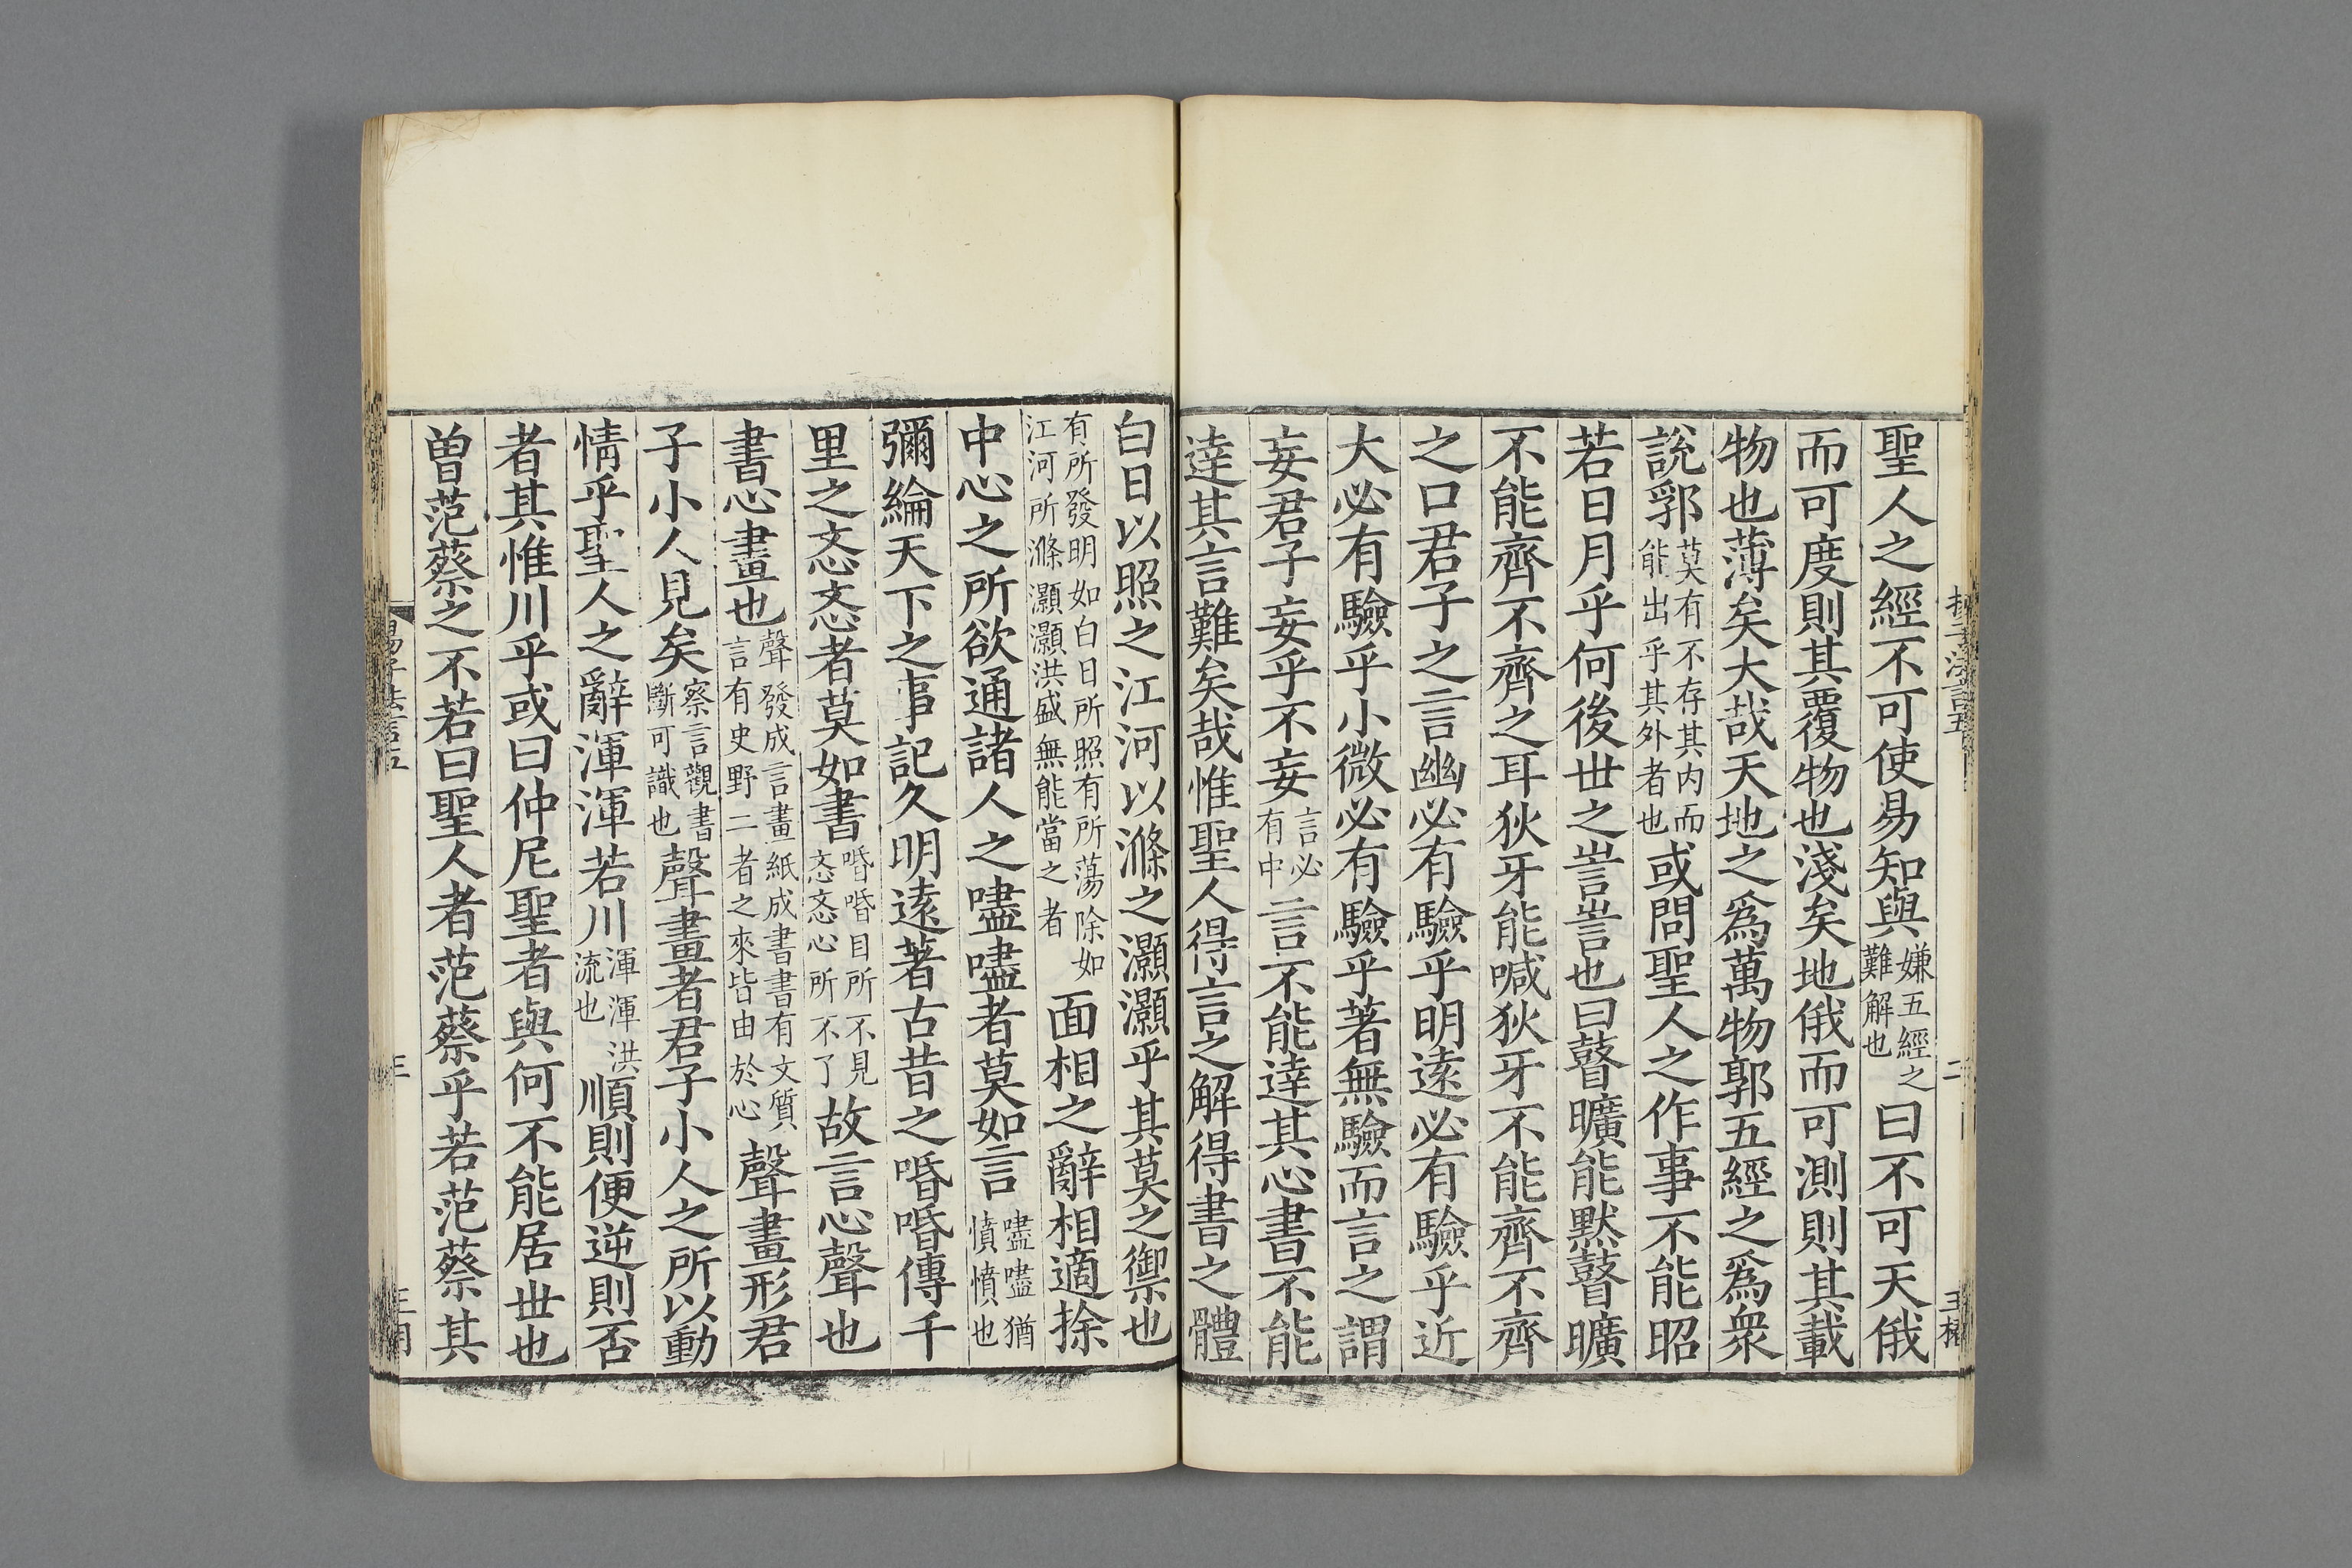 聖人之經不可使易知與嫌五經之難解也曰不可天俄
而可度則其覆物也淺矣地俄而可測則其載
物也薄矣大哉天地之爲萬物郭五經之爲衆
說郛莫有不存其内而能出乎其外者也或問聖人之作事不能昭
若日月乎何後世之訔訔也曰瞽曠能默瞽曠
不能齊不齊之耳狄牙能喊狄牙不能齊不齊
之口君子之言幽必有驗乎明遠必有驗乎近
大必有驗乎小微必有驗乎著無驗而言之謂
妄君子妄乎不妄言必有中言不能達其心書不能
達其言難矣哉惟聖人得言之解得書之體
白日以照之江河以滌之灝灝乎其莫之禦也
有所發明如白日所照有所蕩除如江河所滌灝灝洪盛無能當之者面相之辭相適捈
中心之所欲通諸人之嚍嚍者莫如言嚍嚍猶憤憤也
彌綸天下之事記久明遠著古昔之㖧㖧傳千
里之忞忞者莫如書㖧㖧目所不見忞忞心所不了故言心聲也
書心畫也聲發成言畫紙成書書有文質言有史野二者之來皆由於心聲畫形君
子小人見矣察言觀書斷可識也聲畫者君子小人之所以動
情乎聖人之辭渾渾若川渾渾洪流也順則便逆則否
者其惟川乎或曰仲尼聖者與何不能居世也
曾范蔡之不若曰聖人者范蔡乎若范蔡其